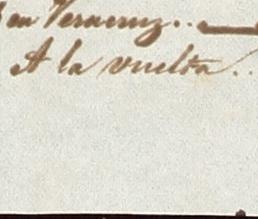 en Veracruz..
A la vuelta..